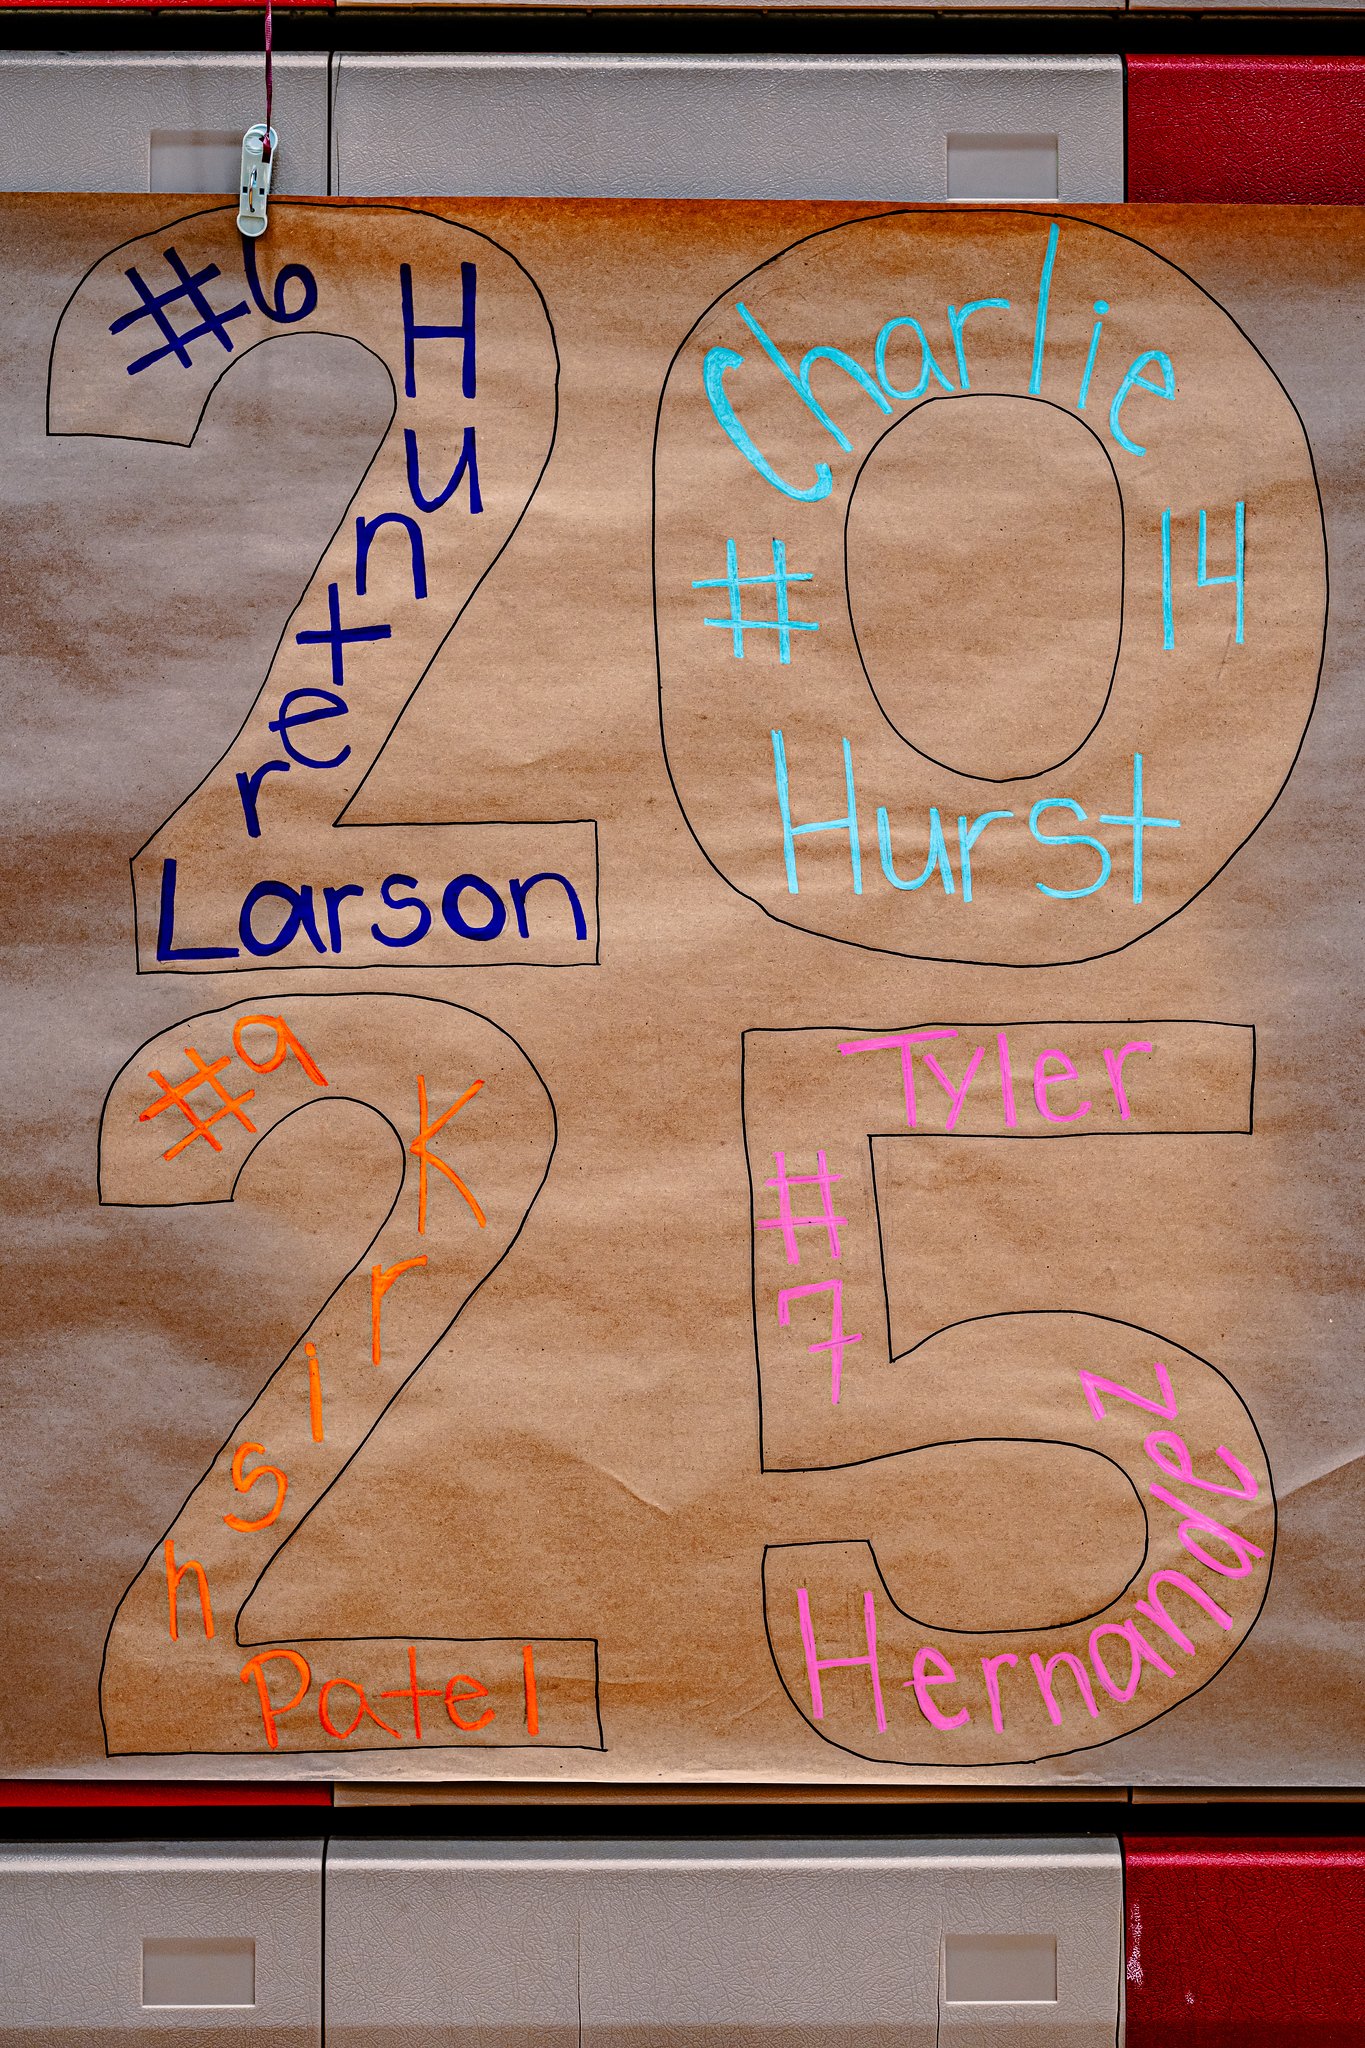 #6
Hunter
Larson
Charlie
#14
Hurst
#9
Krish
Patel
Tyler
#7
Hernandez